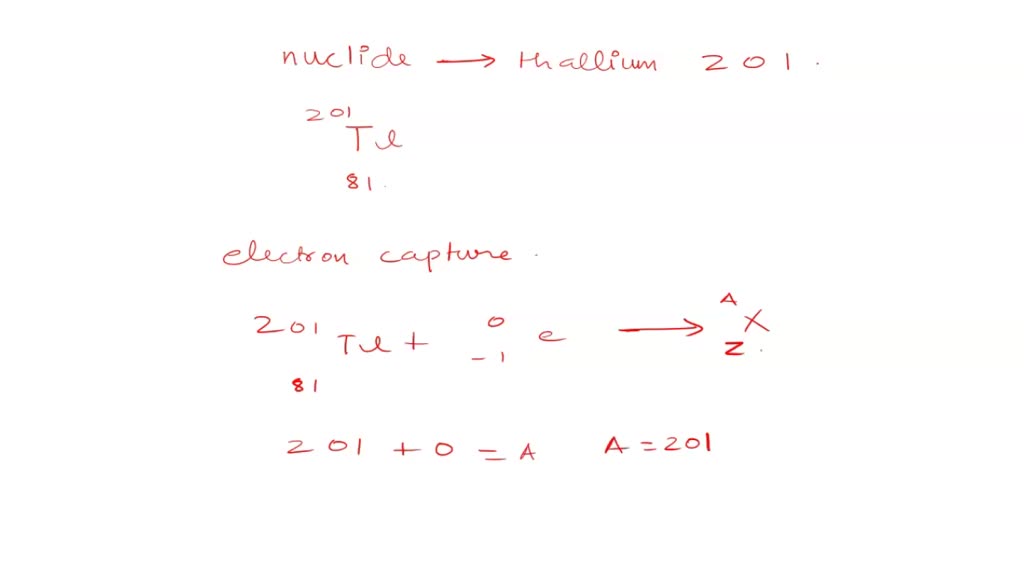 nuclide → thallium 201.
201
Tl
81.
electron capture.
201 0 A
Tl + e → X
81 -1 Z.
201 + 0 = A A = 201